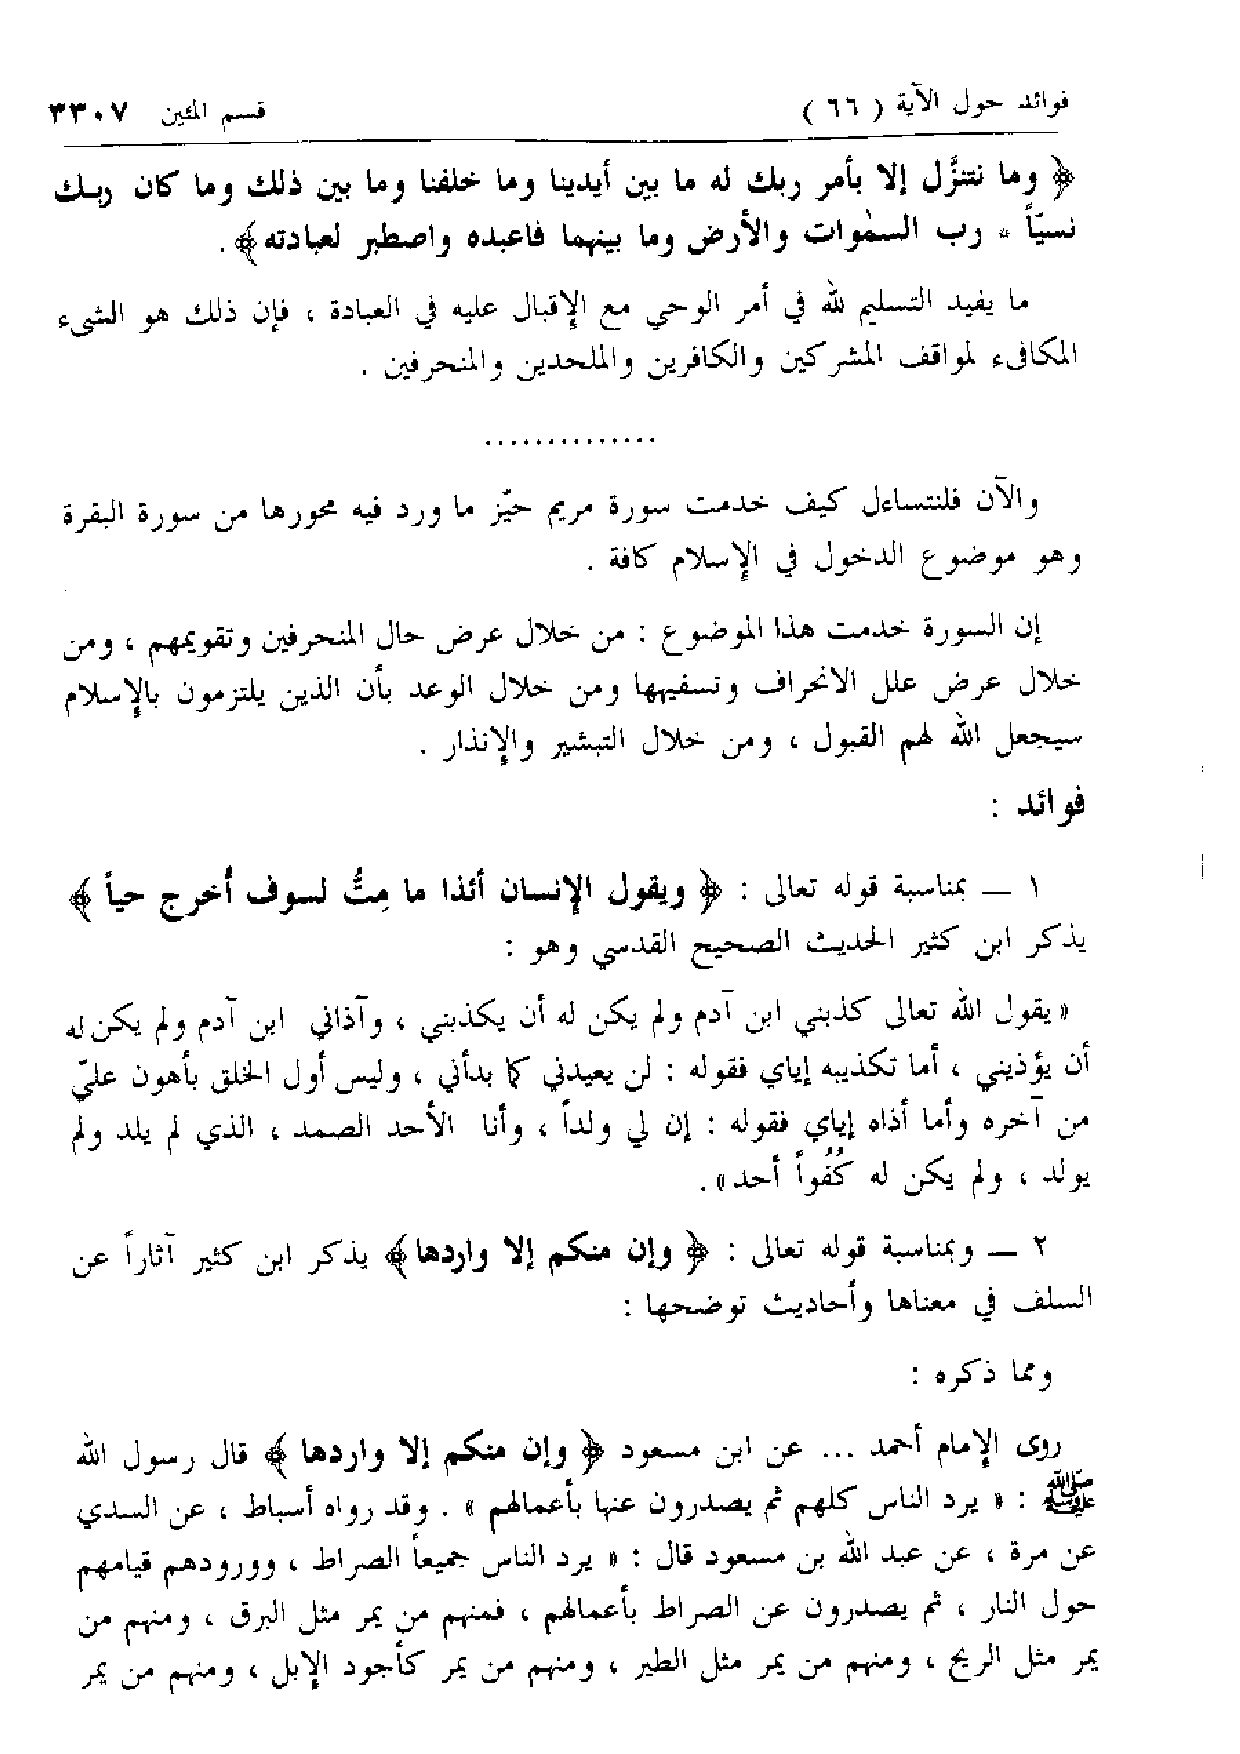 فوائد حول الآية ( ٦٦ ) قسم المئين ٣٣٠٧
﴿ وما نتنزَّل إلا بأمر ربك له ما بين أيدينا وما خلفنا وما بين ذلك وما كان ربك
نسيّاً * رب السمٰوات والأرض وما بينهما فاعبده واصطبر لعبادته﴾ .
ما يفيد التسليم لله في أمر الوحي مع الإقبال عليه في العبادة ، فإن ذلك هو الشىء
المكافىء لمواقف المشركين والكافرين والملحدين والمنحرفين .
..............
والآن فلنتساءل كيف خدمت سورة مريم حيّز ما ورد فيه محورها من سورة البقرة
وهو موضوع الدخول في الإسلام كافة .
إن السورة خدمت هذا الموضوع : من خلال عرض حال المنحرفين وتقويمهم ، ومن
خلال عرض علل الانحراف وتسفيهها ومن خلال الوعد بأن الذين يلتزمون بالإسلام
سيجعل الله لهم القبول ، ومن خلال التبشير والإنذار .
فوائد :
١ — بمناسبة قوله تعالى : ﴿ ويقول الإنسان أئذا ما مِتُّ لسوف أُخرج حياً ﴾
يذكر ابن كثير الحديث الصحيح القدسي وهو :
« يقول الله تعالى كذبني ابن آدم ولم يكن له أن يكذبني ، وآذاني ابن آدم ولم يكن له
أن يؤذيني ، أما تكذيبه إياي فقوله : لن يعيدني كما بدأني ، وليس أول الخلق بأهون عليّ
من آخره وأما أذاه إياي فقوله : إن لي ولداً ، وأنا الأحد الصمد ، الذي لم يلد ولم
يولد ، ولم يكن له كُفُواً أحد » .
٢ — وبمناسبة قوله تعالى : ﴿ وإن منكم إلا واردها﴾ يذكر ابن كثير آثاراً عن
السلف في معناها وأحاديث توضحها :
ومما ذكره :
روى الإمام أحمد ... عن ابن مسعود ﴿ وإن منكم إلا واردها ﴾ قال رسول الله
ﷺ : « يرد الناس كلهم ثم يصدرون عنها بأعمالهم » . وقد رواه أسباط ، عن السدي
عن مرة ، عن عبد الله بن مسعود قال : « يرد الناس جميعاً الصراط ، وورودهم قيامهم
حول النار ، ثم يصدرون عن الصراط بأعمالهم ، فمنهم من يمر مثل البرق ، ومنهم من
يمر مثل الريح ، ومنهم من يمر مثل الطير ، ومنهم من يمر كأجود الإبل ، ومنهم من يمر